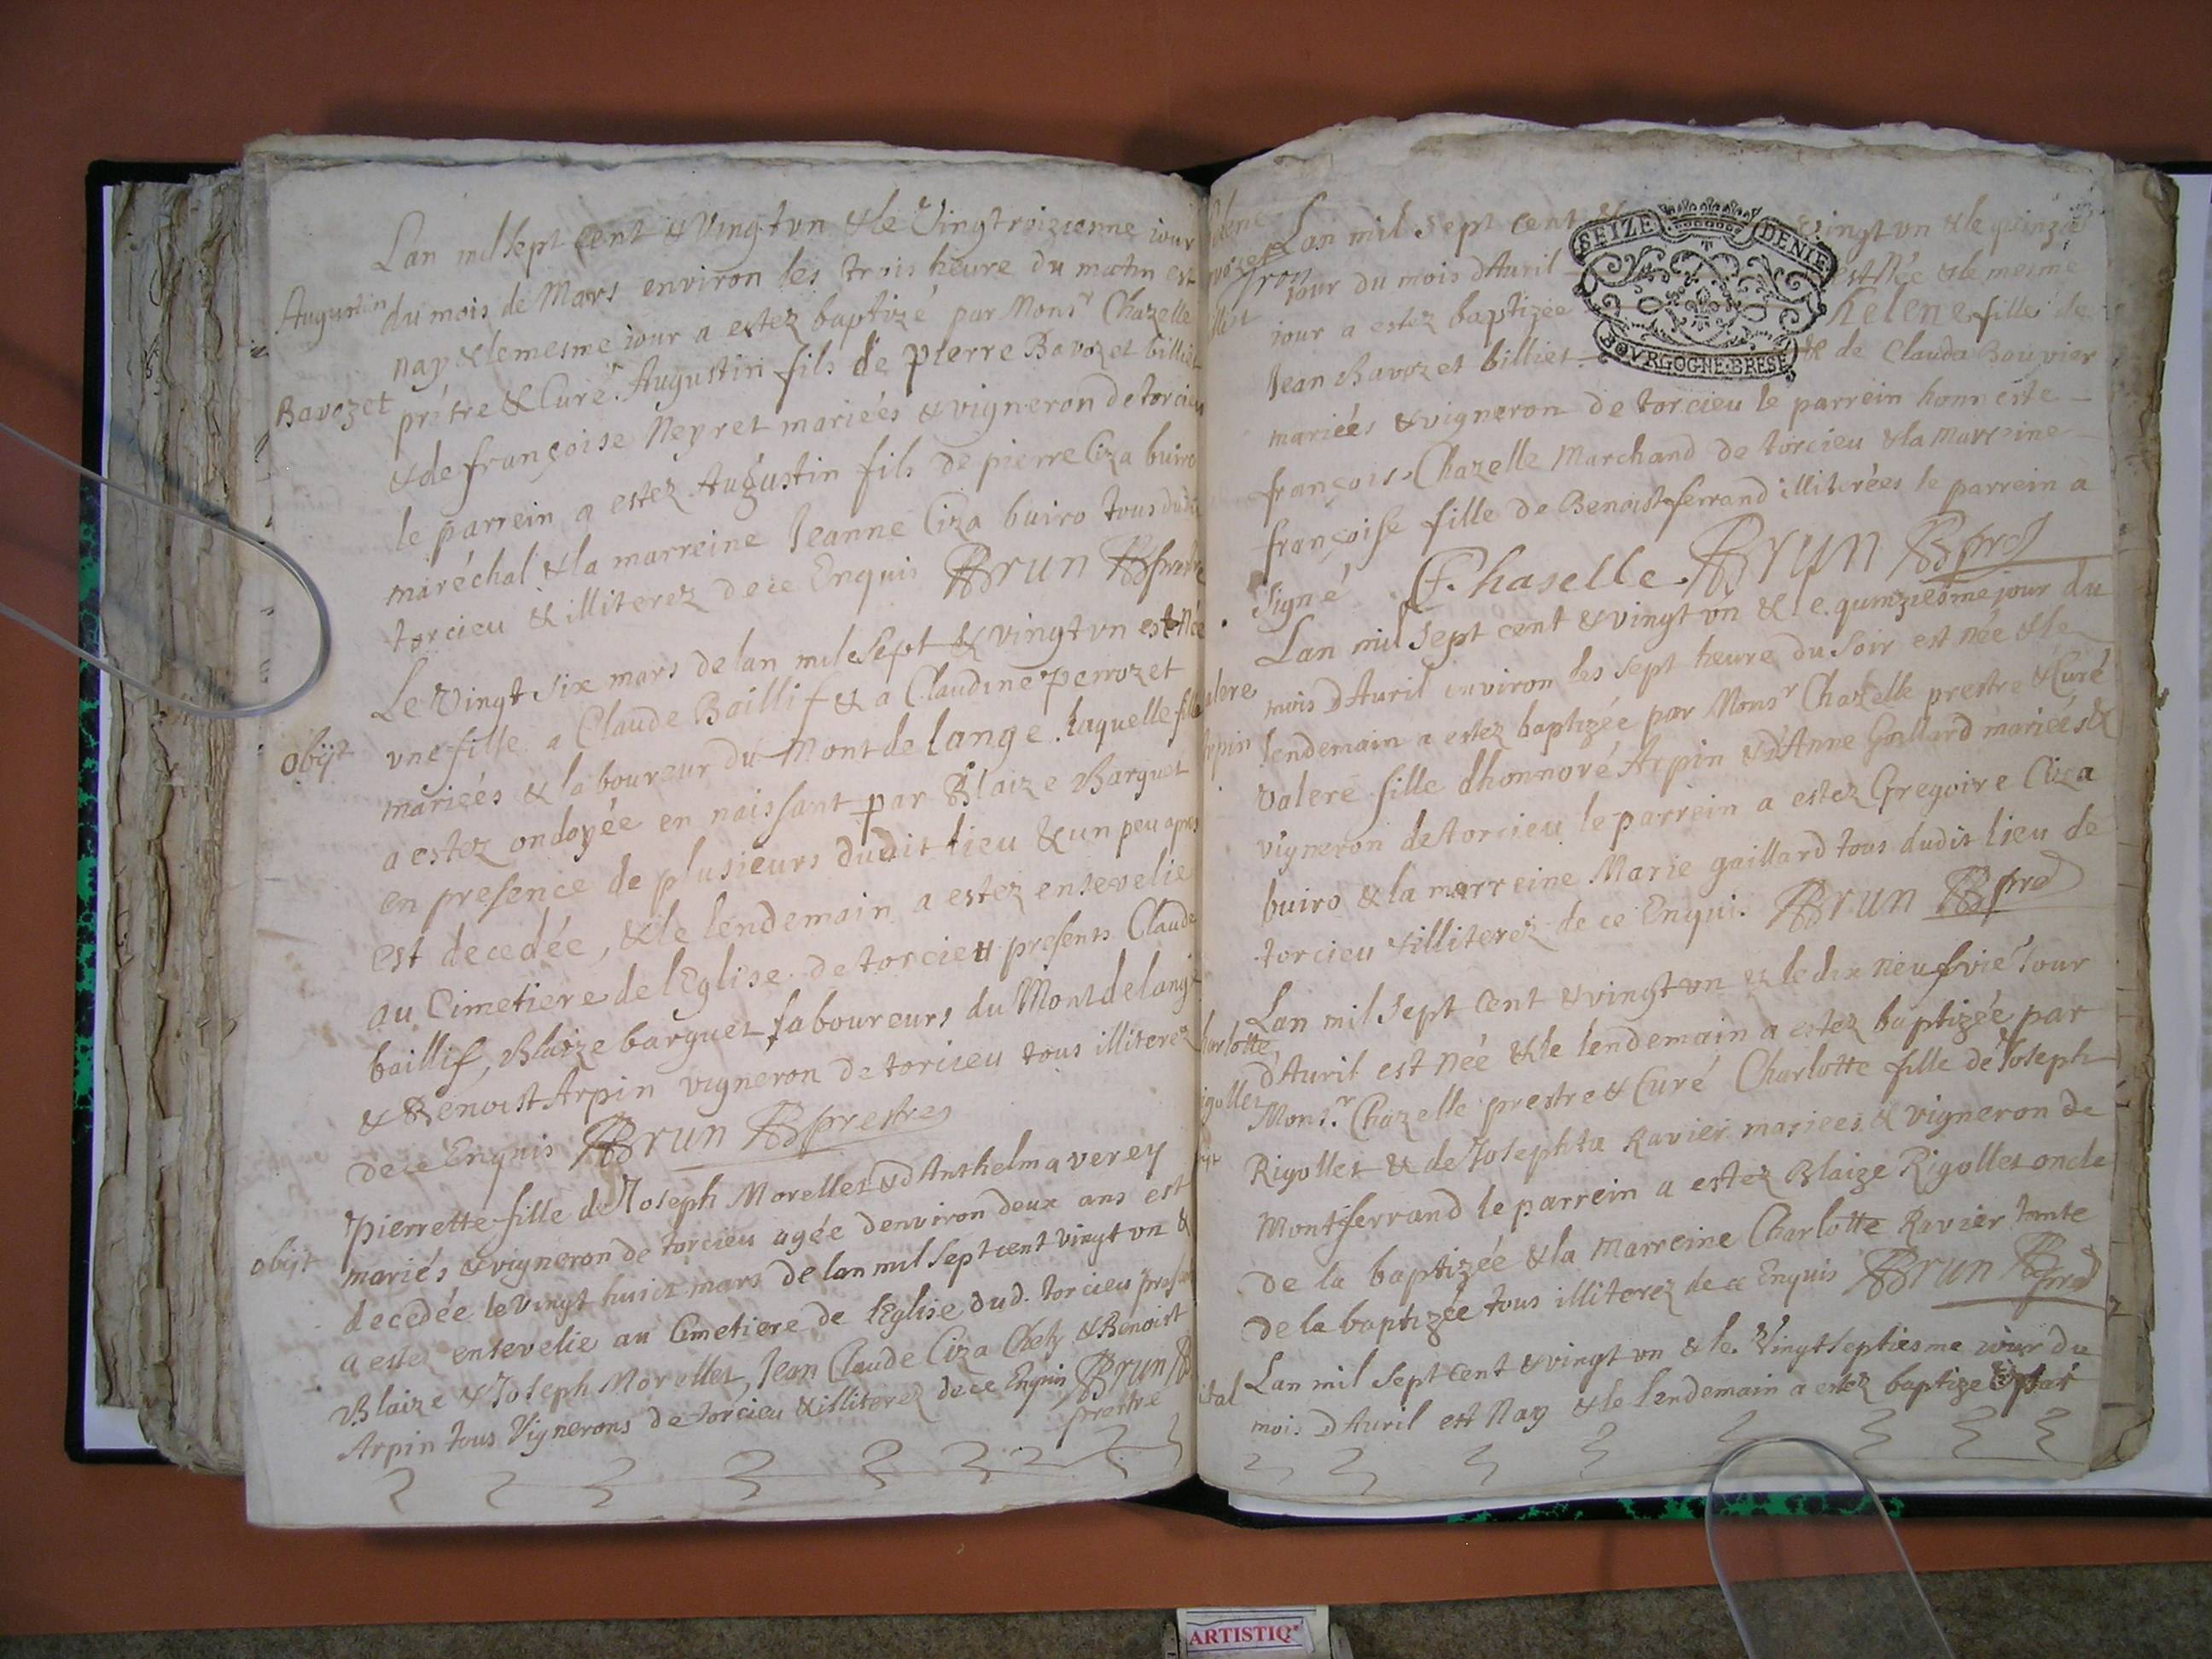 Lan mil sept cent & Vingt vn & le Vingt roizienne iour
du mois de Mars environ les trois heure du matin est
Augustin
nay & le mesme iour a estez baptizé par Monsr Chazelle
prétre & Curé Augustin fils de pierre Bavozet billiet
Bavozet
& de françoise Neyret mariées & vigneron de torcieu
le parrein a estez Augustin fils de pierre Ciza buiro
maréchal & la marreine Jeanne Ciza buiro tous dudit
torcieu & illiterez de ce Enquis Brun Bprestre
Le Vingt six mars de lan mil sept & vingt vn est Née
vne fille a Claude Baillif & a Claudine perrozet
obijt
mariées & laboureur du Mont de lange. laquelle fille
a estez ondoyée en naissant par Blaize Barguet
en presence de plusieurs dudit lieu & un peu apres
est decedée, & le lendemain a estez ensevelie
au Cimetiere de lEglise de torcieu presents Claude
baillif, Blaize barguet laboureurs du Mont de lange
& Benoist Arpin vigneron de torcieu tous illiterez
de ce Enquis Brun Bprestre
Pierrette fille de Joseph Morellet & d'Anthelma verey
mariés & vigneron de torcieu agée denviron deux ans est
obijt
decedée le vingt huict mars de lan mil sept cent vingt vn &
a estez ensevelie au Cimetiere de lEglise dud. torcieu present
Blaize & Joseph Morellet, Jean Claude Ciza Chety & Benoist
Arpin tous Vignerons de torcieu & illiterez de ce Enquis Brun B
prestre
Lan mil Sept cent & vingt vn & le quinzie
jour du mois dAuril est Née & le mesme
iour a estez baptizée helene fille de
SEIZE DENIE
BOVRGOGNE·BRESE
Jean Bavozet billiet & de Clauda Bouvier
mariées & vigneron de torcieu le parrein honneste
françois Chazelle Marchand de torcieu & la Marreine
françoise fille de Benoist ferrand illiterées le parrein a
signé F. Chaselle. Brun Bpre
Lan mil sept cent & vingt vn & le quinzieme jour du
mois dAuril environ les sept heure du soir est née & le
alere
lendemain a estez baptizée par Monsr Chazelle prestre & Curé
rpin
Valere fille dhonnoré Arpin & d'Anne Gallard mariées &
vigneron de torcieu le parrein a estez Gregoire Ciza
buiro & la marreine Marie gaillard tous dudit lieu de
torcieu & illiterez de ce Enqui. Brun Bpre
Lan mil sept Cent & vingt vn & le dix neufvie Jour
harlotte
dAuril est Née & le lendemain a estez baptizée par
igollet
Monsr. Chazelle prestre & Curé Charlotte fille de Joseph
Rigollet & de Josephta Ravier mariees & vigneron de
Montferrand le parrein a estez Blaize Rigollet oncle
de la baptizée & la Marreine Charlotte Ravier tante
de la baptizée tous illiterez de ce Enquis Brun Bpre
Lan mil Sept Cent & vingt vn & le Vingt septiesme iour du
ital
mois dAuril est Nay & le lendemain a estez baptizé par
ARTISTIQ